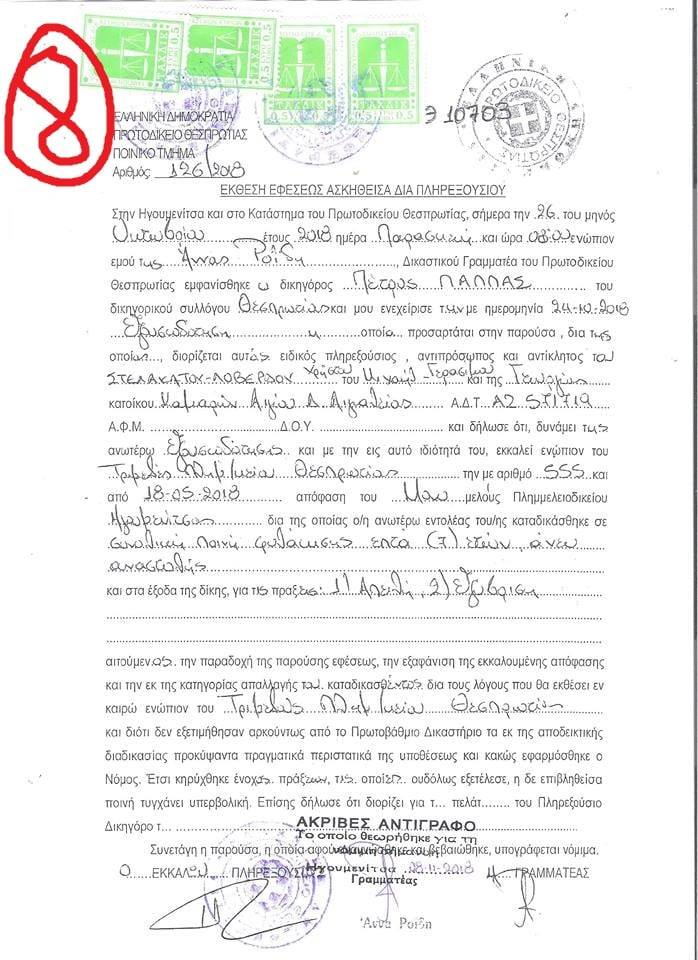 8
ΤΑΧΔΙΚ
0.5
ΤΑΧΔΙΚ
0.5
ΤΑΧΔΙΚ
0.5
ΤΑΧΔΙΚ
0.5
Э 10703
ΠΡΩΤΟΔΙΚΕΙΟ ΘΕΣΠΡΩΤΙΑΣ
ΕΛΛΗΝΙΚΗ ΔΗΜΟΚΡΑΤΙΑ
ΠΡΩΤΟΔΙΚΕΙΟ ΘΕΣΠΡΩΤΙΑΣ
ΠΟΙΝΙΚΟ ΤΜΗΜΑ
Αριθμός: 126/2018
ΕΚΘΕΣΗ ΕΦΕΣΕΩΣ ΑΣΚΗΘΕΙΣΑ ΔΙΑ ΠΛΗΡΕΞΟΥΣΙΟΥ
Στην Ηγουμενίτσα και στο Κατάστημα του Πρωτοδικείου Θεσπρωτίας, σήμερα την 26 του μηνός
Οκτωβρίου έτους 2018 ημέρα Παρασκευή και ώρα ενώπιον
εμού της Άννας Ροΐδη, Δικαστικού Γραμματέα του Πρωτοδικείου
Θεσπρωτίας εμφανίσθηκε ο δικηγόρος Πέτρος ΠΑΠΠΑΣ του
δικηγορικού συλλόγου Θεσπρωτίας και μου ενεχείρισε την με ημερομηνία 24-10-2018
Εξουσιοδότηση η οποία προσαρτάται στην παρούσα , δια της
οποίας, διορίζεται αυτός ειδικός πληρεξούσιος , αντιπρόσωπος και αντίκλητος του
ΣΤΕΛΑΚΑΤΟΥ-ΛΟΒΕΡΔΟΥ Χρήστου του Μιχαήλ-Γεράσιμου και της Γεωργίας
κατοίκου Καμαρών Αιγίου Δ. Αιγιαλείας Α.Δ.Τ ΑΖ 571719
Α.Φ.Μ. Δ.Ο.Υ. και δήλωσε ότι, δυνάμει της
ανωτέρω εξουσιοδότησης και με την εις αυτό ιδιότητά του, εκκαλεί ενώπιον του
Τριμελούς Πλημ/κείου Θεσπρωτίας την με αριθμό 555 και
από 18-05-2018 απόφαση του Μον μελούς Πλημμελειοδικείου
Ηγουμενίτσας δια της οποίας ο/η ανωτέρω εντολέας του/ης καταδικάσθηκε σε
συνολική ποινή φυλάκισης επτά (7) ετών άνευ
αναστολής
και στα έξοδα της δίκης, για τις πράξεις: 1) Απειλή, 2) Εξύβριση
αιτούμενος την παραδοχή της παρούσης εφέσεως, την εξαφάνιση της εκκαλουμένης απόφασης
και την εκ της κατηγορίας απαλλαγής του καταδικασθέντος δια τους λόγους που θα εκθέσει εν
καιρώ ενώπιον του Τριμελούς Πλημ/κείου Θεσπρωτίας
και διότι δεν εξετιμήθησαν αρκούντως από το Πρωτοβάθμιο Δικαστήριο τα εκ της αποδεικτικής
διαδικασίας προκύψαντα πραγματικά περιστατικά της υποθέσεως και κακώς εφαρμόσθηκε ο
Νόμος. Έτσι κηρύχθηκε ένοχος πράξεων, τις οποίες ουδόλως εξετέλεσε, η δε επιβληθείσα
ποινή τυγχάνει υπερβολική. Επίσης δήλωσε ότι διορίζει για τ... πελάτ........ του Πληρεξούσιο
Δικηγόρο τ...
ΑΚΡΙΒΕΣ ΑΝΤΙΓΡΑΦΟ
Το οποίο θεωρήθηκε για τη
νόμιμη σήμανση
Συνετάγη η παρούσα, η οποία αφού και βεβαιώθηκε, υπογράφεται νόμιμα.
Ηγουμενίτσα 28-11-2018
Ο ΕΚΚΑΛΩΝ ΠΛΗΡΕΞΟΥΣΙΟΣ Η ΓΡΑΜΜΑΤΕΑΣ
Γραμματέας
Άννα Ροΐδη